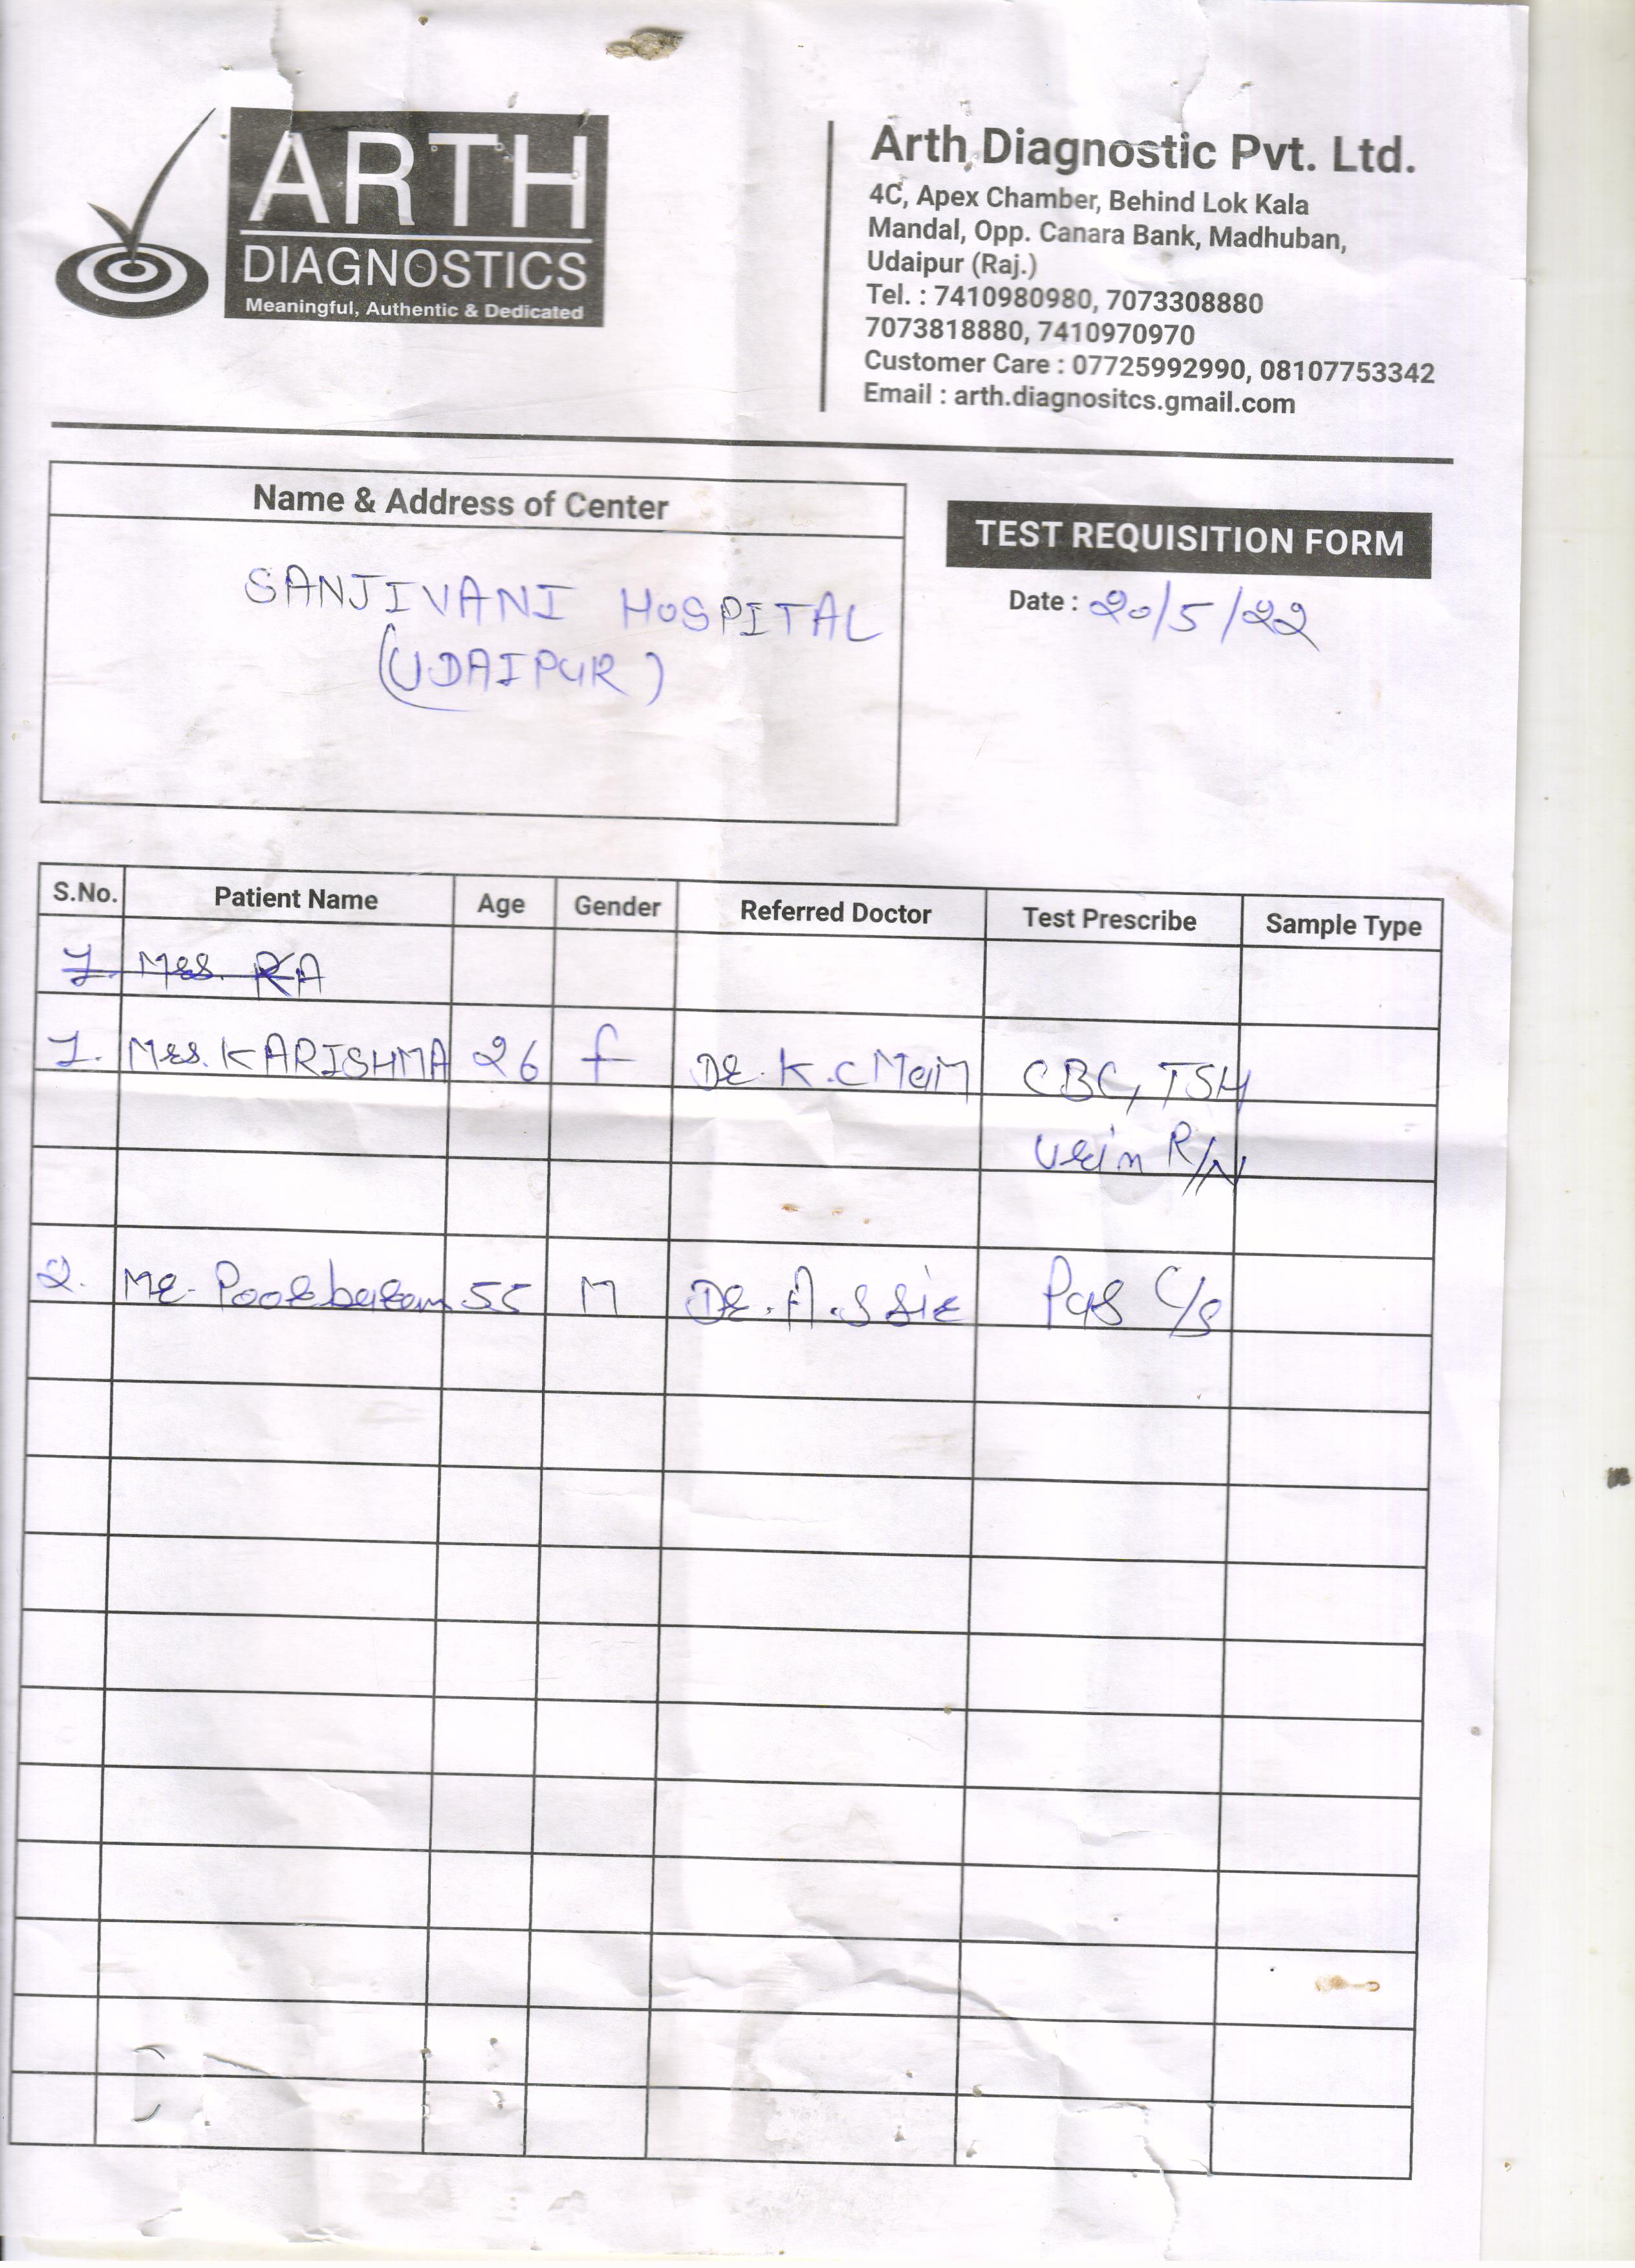 ARTH
DIAGNOSTICS
Meaningful, Authentic & Dedicated
Arth Diagnostic Pvt. Ltd.
4C, Apex Chamber, Behind Lok Kala
Mandal, Opp. Canara Bank, Madhuban,
Udaipur (Raj.)
Tel. : 7410980980, 7073308880
7073818880, 7410970970
Customer Care : 07725992990, 08107753342
Email : arth.diagnositcs.gmail.com
Name & Address of Center
SANJIVANI HOSPITAL
(UDAIPUR)
TEST REQUISITION FORM
Date : 20/5/22
S.No. Patient Name Age Gender Referred Doctor Test Prescribe Sample Type
1. Mrs. RA
1. Mrs. KARISHMA 26 f Dr. K.C Mam CBC, TSH
Urin R/N
2. Mr. Poorbaram 55 M Dr. A.S Sir Pus C/s